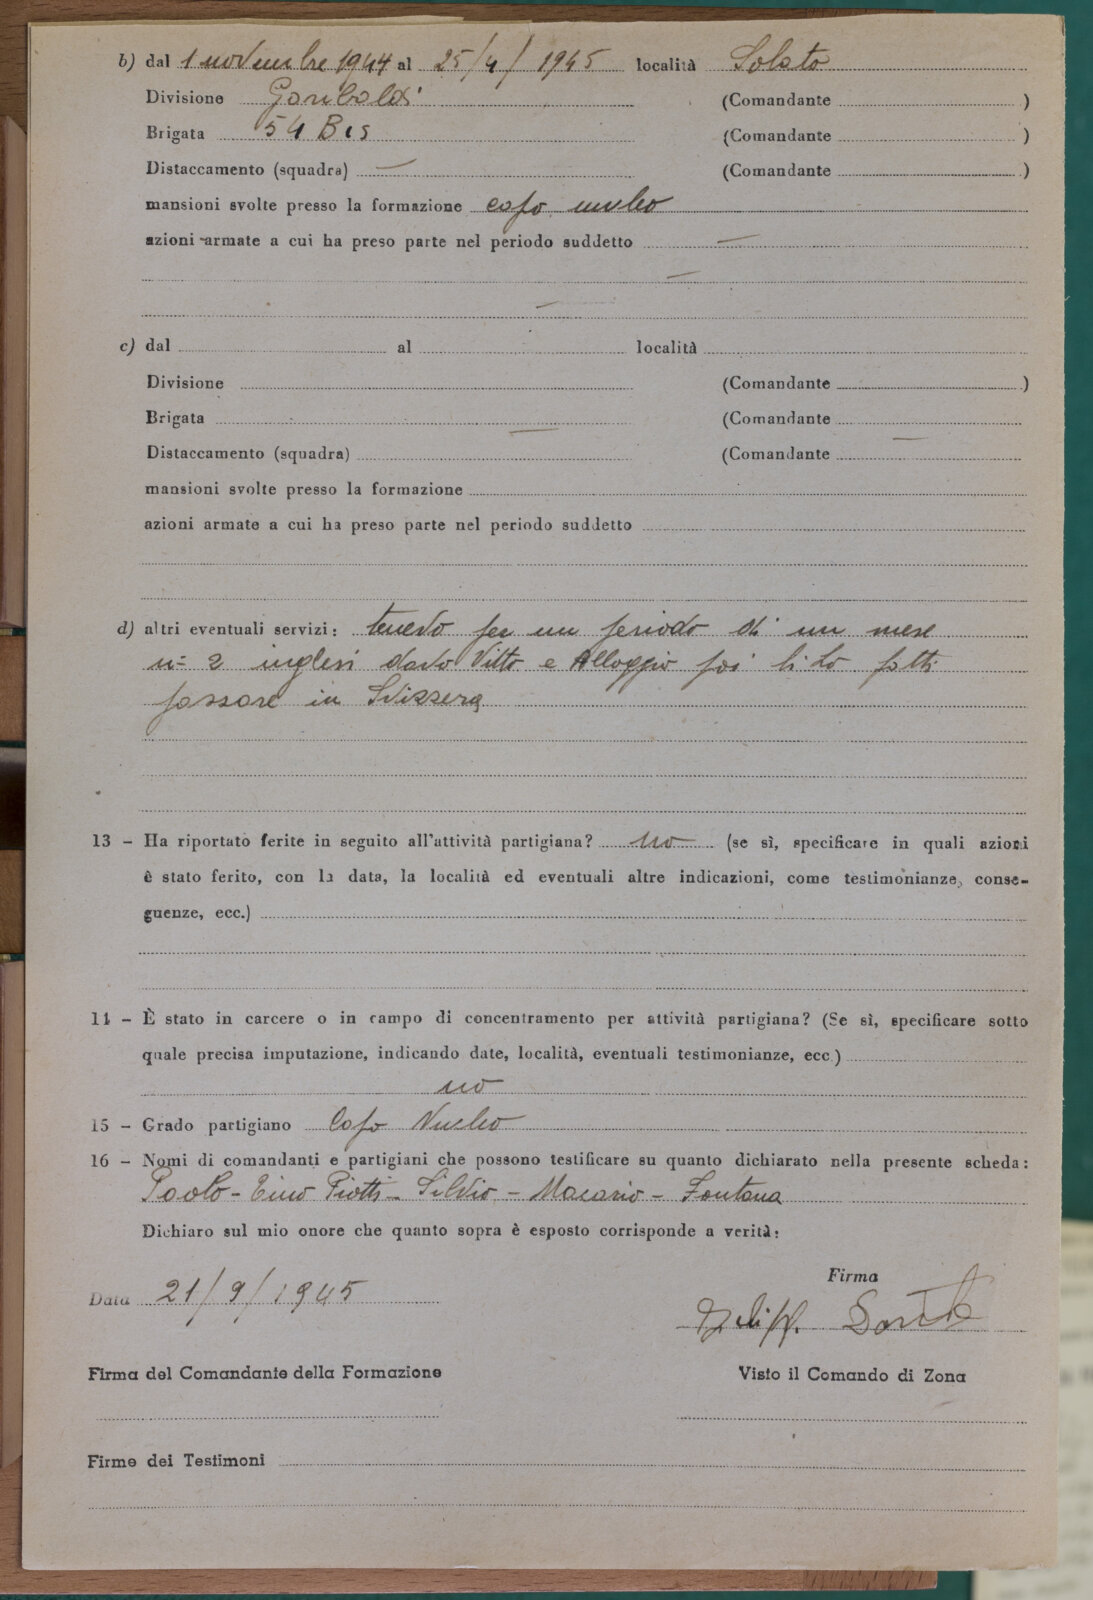 b) dal 1 novembre 1944 al 25/4/1945 località Solato
Divisione Garibaldi (Comandante )
Brigata 54 Bis (Comandante )
Distaccamento (squadra) — (Comandante )
mansioni svolte presso la formazione capo nucleo
azioni armate a cui ha preso parte nel periodo suddetto —
—
—
c) dal al località
Divisione (Comandante )
Brigata (Comandante
Distaccamento (squadra) — (Comandante —
mansioni svolte presso la formazione
azioni armate a cui ha preso parte nel periodo suddetto
d) altri eventuali servizi: tenuto per un periodo di un mese
n= 2 inglesi dato Vitto e Alloggio poi li ho fatti
passare in Svizzera
13 – Ha riportato ferite in seguito all'attività partigiana? no (se sì, specificare in quali azioni
è stato ferito, con la data, la località ed eventuali altre indicazioni, come testimonianze, conse-
guenze, ecc.)
14 – È stato in carcere o in campo di concentramento per attività partigiana? (Se sì, specificare sotto
quale precisa imputazione, indicando date, località, eventuali testimonianze, ecc.)
no
15 – Grado partigiano Capo Nucleo
16 – Nomi di comandanti e partigiani che possono testificare su quanto dichiarato nella presente scheda:
Paolo - Tino Piotti - Silvio - Macario - Fontana
Dichiaro sul mio onore che quanto sopra è esposto corrisponde a verità:
Firma
Data 21/9/1945
Firma del Comandante della Formazione Visto il Comando di Zona
Firme dei Testimoni